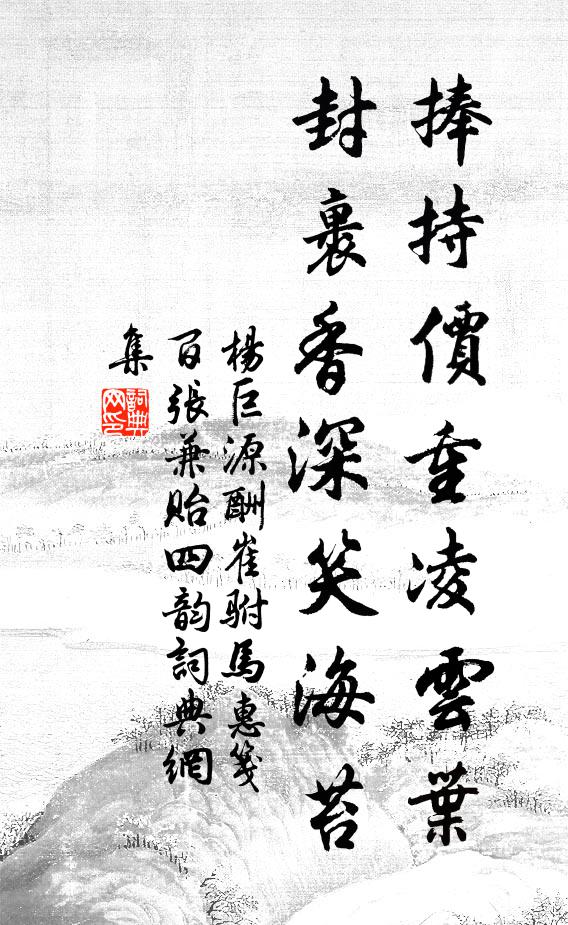 捧持價重凌雲葉
封裹香深笑海苔
楊巨源酬崔駙馬惠箋
百張兼貽四韵詞典網
集
詞典
网印